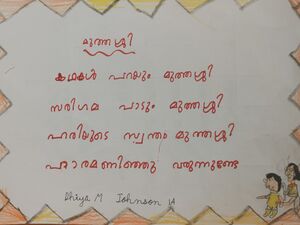 മുത്തശ്ശി
കഥകൾ പറയും മുത്തശ്ശി
സരിഗമ പാടും മുത്തശ്ശി
ഹരിയുടെ സ്വന്തം മുത്തശ്ശി
വരുന്നുണ്ടേ
Dhiya M Johnson 1A